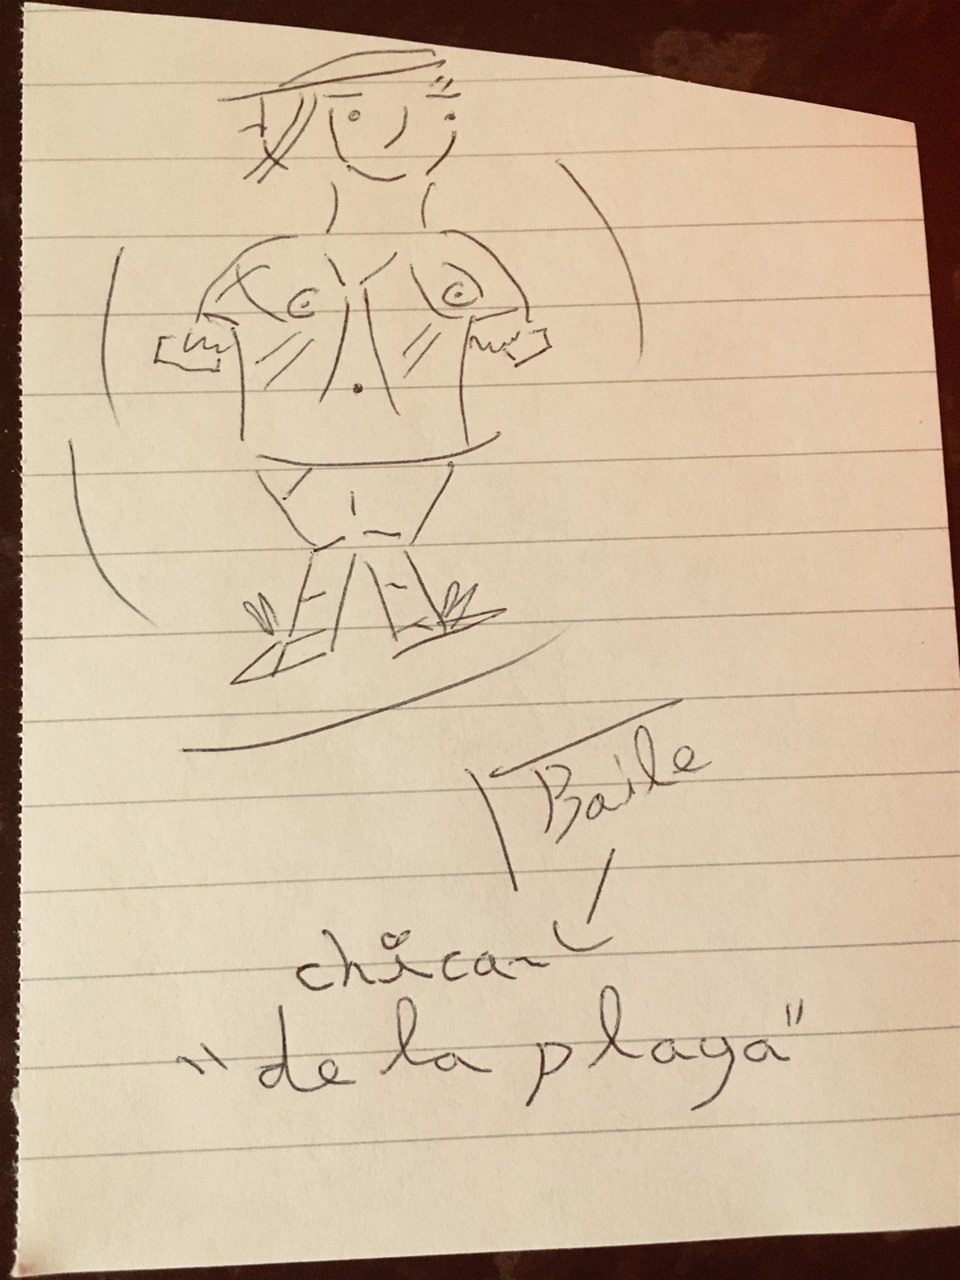 Baile
chica
"de la playa"